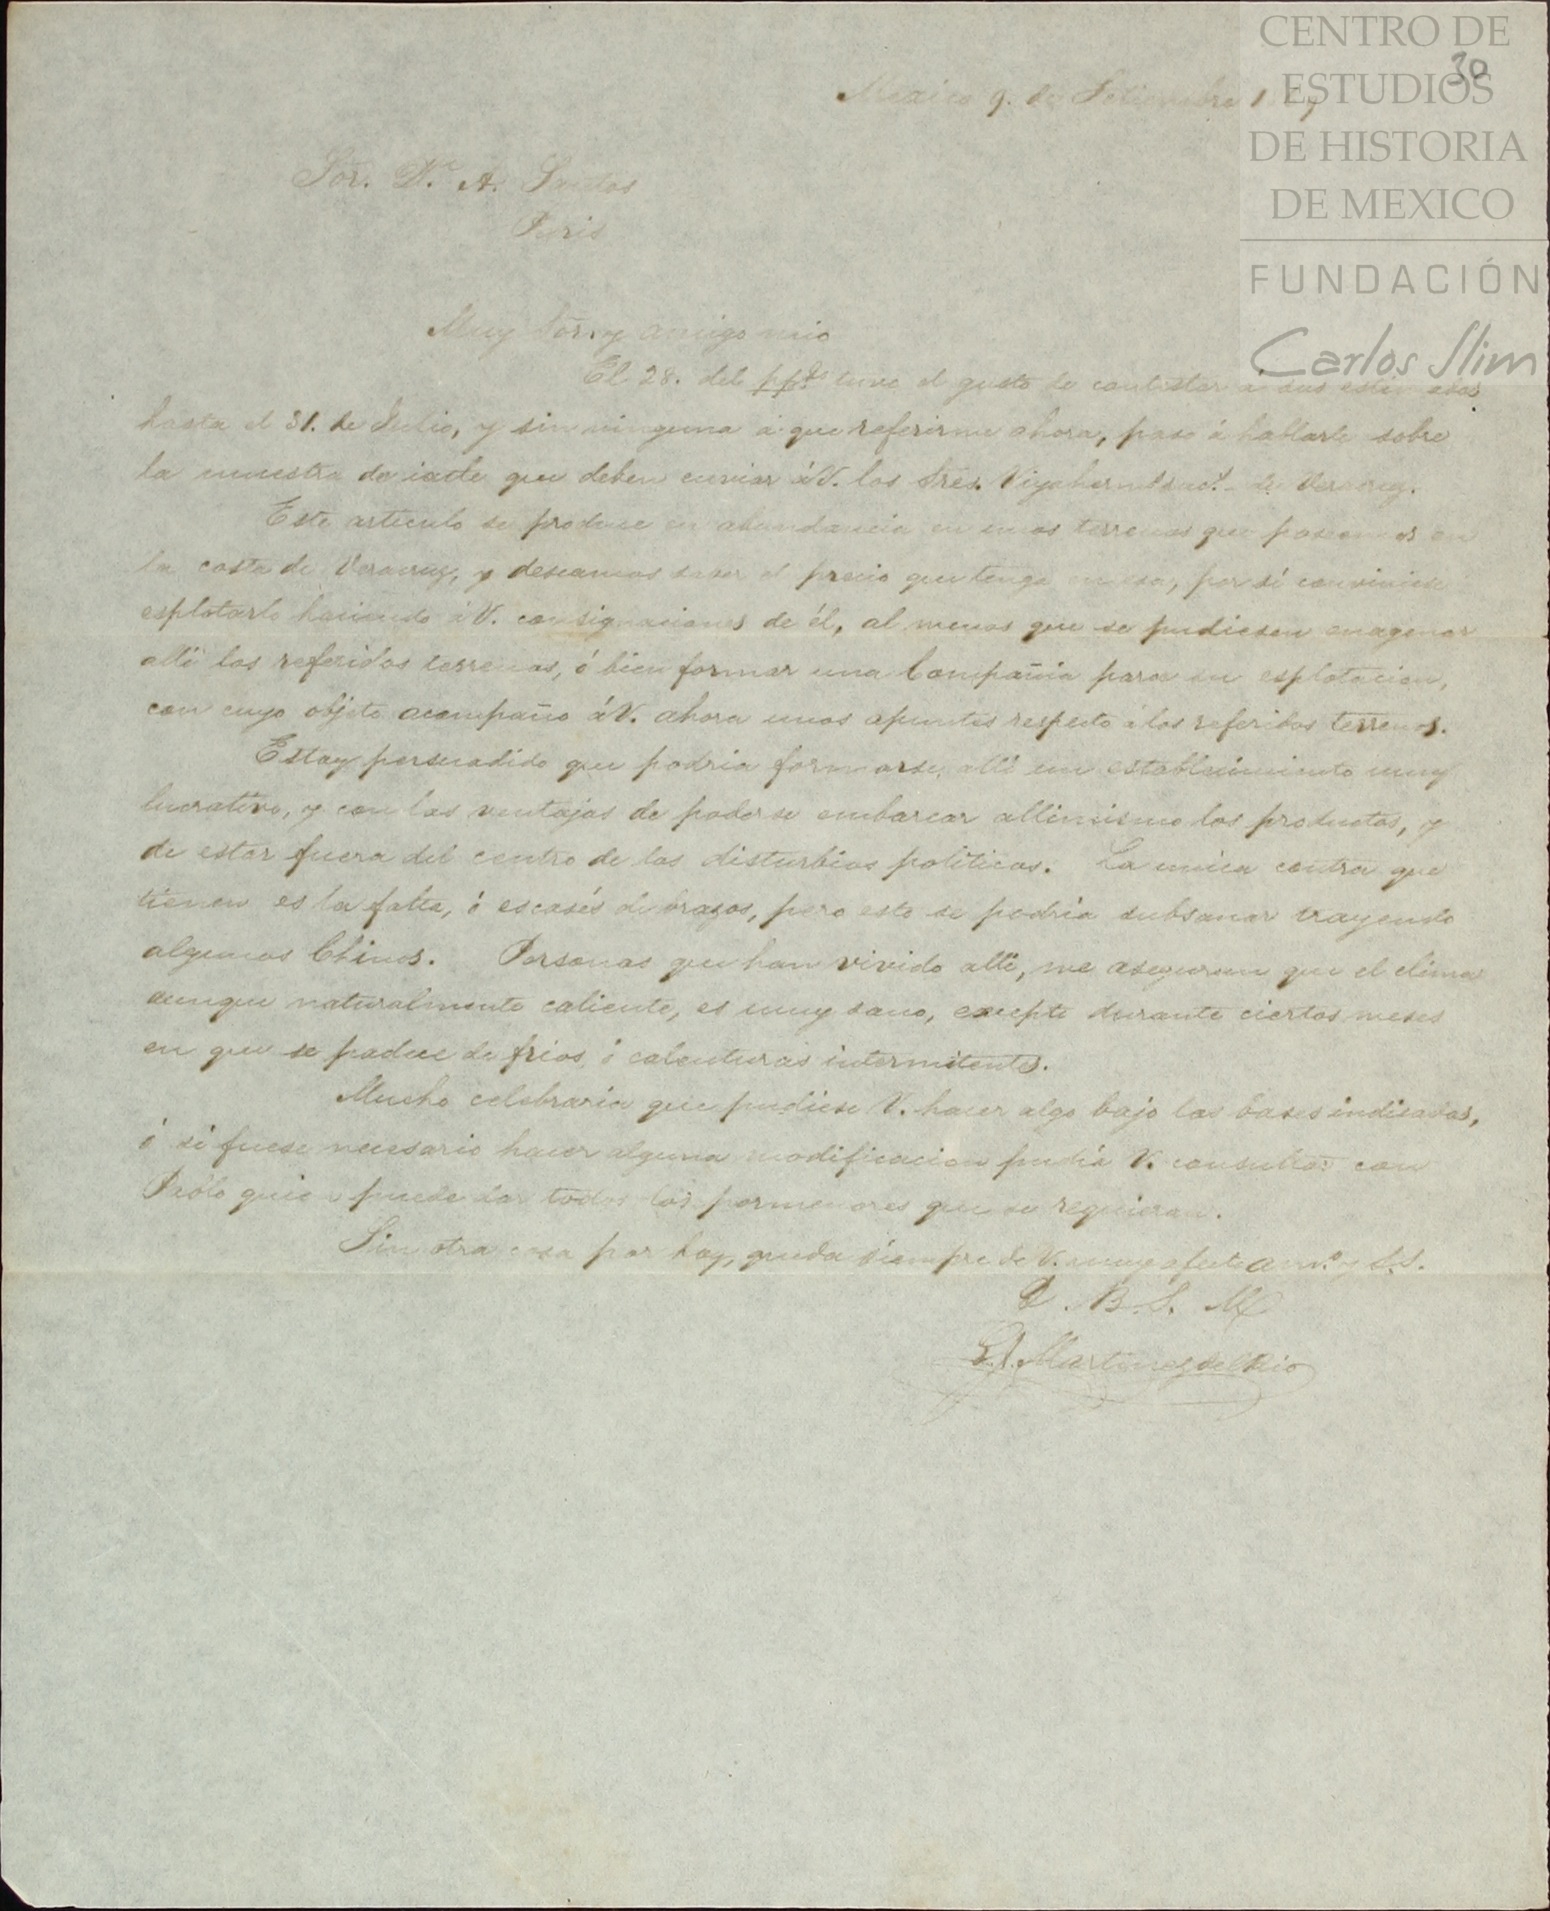 CENTRO DE
ESTUDIOS
DE HISTORIA
DE MEXICO
FUNDACIÓN
Carlos Slim
30
Mexico 9. de Setiembre
Sor. Dn. A.
Paris
Muy Sor. y amigo mio
El 28. del pp.do tuve el gusto de contestar a sus estimadas
hasta el 31. de Julio, y sin ninguna á que referirme ahora, paso á hablarle sobre
la muestra de ixtle que deben enviar á V. los Sres. de Veracruz.
Este articulo se produce en abundancia en unos terrenos que poseemos en
la costa de Veracruz, y deseamos saber el precio que tenga en esa, por si conviniese
esplotarlo haciendo á V. consignaciones de él, al menos que se pudiesen enagenar
allí los referidos terrenos, ó bien formar una Compañia para su esplotacion,
con cuyo objeto acompaño á V. ahora unos apuntes respecto á los referidos terrenos.
Estoy persuadido que podria formarse allí un establecimiento muy
lucrativo, y con las ventajas de poderse embarcar alli mismo los productos, y
de estar fuera del centro de los disturbios politicos. La unica contra que
tienen es la falta, ó escasés de brazos, pero esto se podria subsanar trayendo
algunos Chinos. Personas que han vivido allí, me aseguran que el clima
aunque naturalmente caliente, es muy sano, excepto durante ciertos meses
en que se padece de frios, ó calenturas intermitentes.
Mucho celebraria que pudiese V. hacer algo bajo las bases indicadas,
ó si fuese necesario hacer alguna modificacion podría V. consultar con
Pablo quien puede dar todos los pormenores que se requieran.
Sin otra cosa por hoy, queda siempre de V. muy afecto am.o y S.S.
Q. B. S. M.
Martinez del Rio